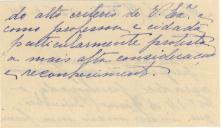 do alto criterio de V. Exª. e
como professor e cidadão
particularmente protesta
a mais alta consideração
e reconhecimento.